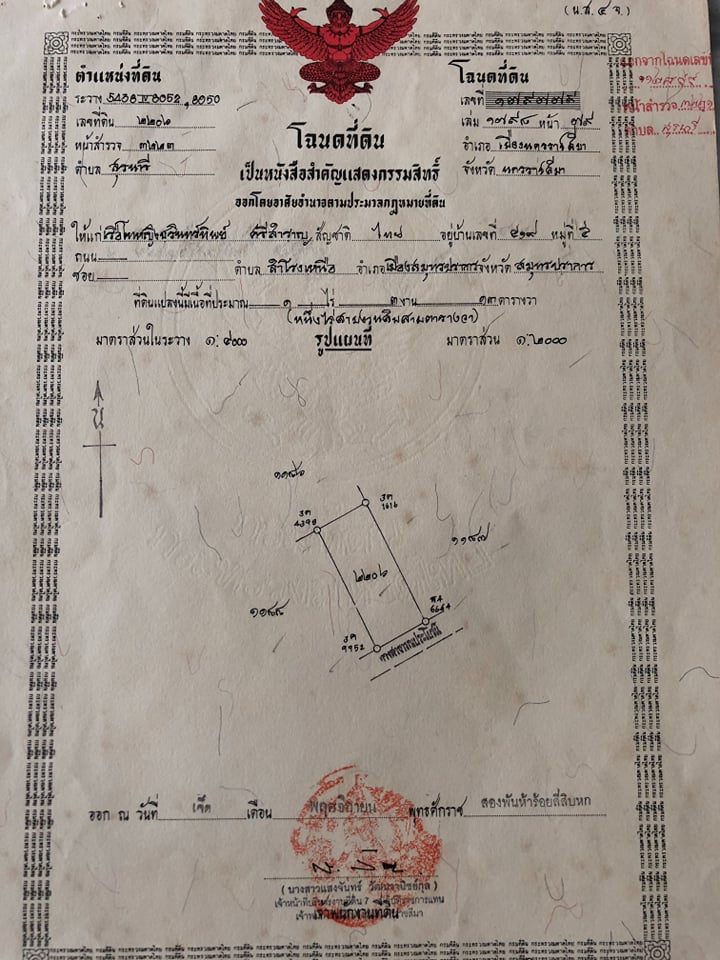 (น.ส. ๔ จ.)
ตำแหน่งที่ดิน
ระวาง 5438 IV 8052, 8050
เลขที่ดิน ๒๒๐๖
หน้าสำรวจ ๓๒๒๓
ตำบล สุรนารี
โฉนดที่ดิน
เลขที่
เล่ม ๑๗๙๘ หน้า ๗๙
อำเภอ เมืองนครราชสีมา
จังหวัด นครราชสีมา
ออกจากโฉนดเลขที่
หน้าสำรวจ
ตำบล
โฉนดที่ดิน
เป็นหนังสือสำคัญแสดงกรรมสิทธิ์
ออกโดยอาศัยอำนาจตามประมวลกฎหมายที่ดิน
ให้แก่ เรือโทหญิง ศรีสำราญ สัญชาติ ไทย อยู่บ้านเลขที่ ๔๑๙ หมู่ที่ ๕
ถนน
ซอย ตำบล สำโรงเหนือ อำเภอ เมืองสมุทรปราการ จังหวัด สมุทรปราการ
ที่ดินแปลงนี้มีเนื้อที่ประมาณ ๑ ไร่ ๓ งาน ๑๓ ตารางวา
(หนึ่งไร่สามงานสิบสามตารางวา)
มาตราส่วนในระวาง ๑: ๔๐๐๐ รูปแผนที่ มาตราส่วน ๑: ๒๐๐๐
น
๑๑๘๖
วค
4398
วค
1616
๑๑๘๗
๒๒๐๖
๑๑๘๘
พ4
6664
วค
9952
ทางสาธารณประโยชน์
ออก ณ วันที่ เจ็ด เดือน พฤศจิกายน พุทธศักราช สองพันห้าร้อยสี่สิบหก
(นางสาวแสงจันทร์)
เจ้าหน้าที่บริหารงานที่ดิน 7
เจ้าพนักงานที่ดิน